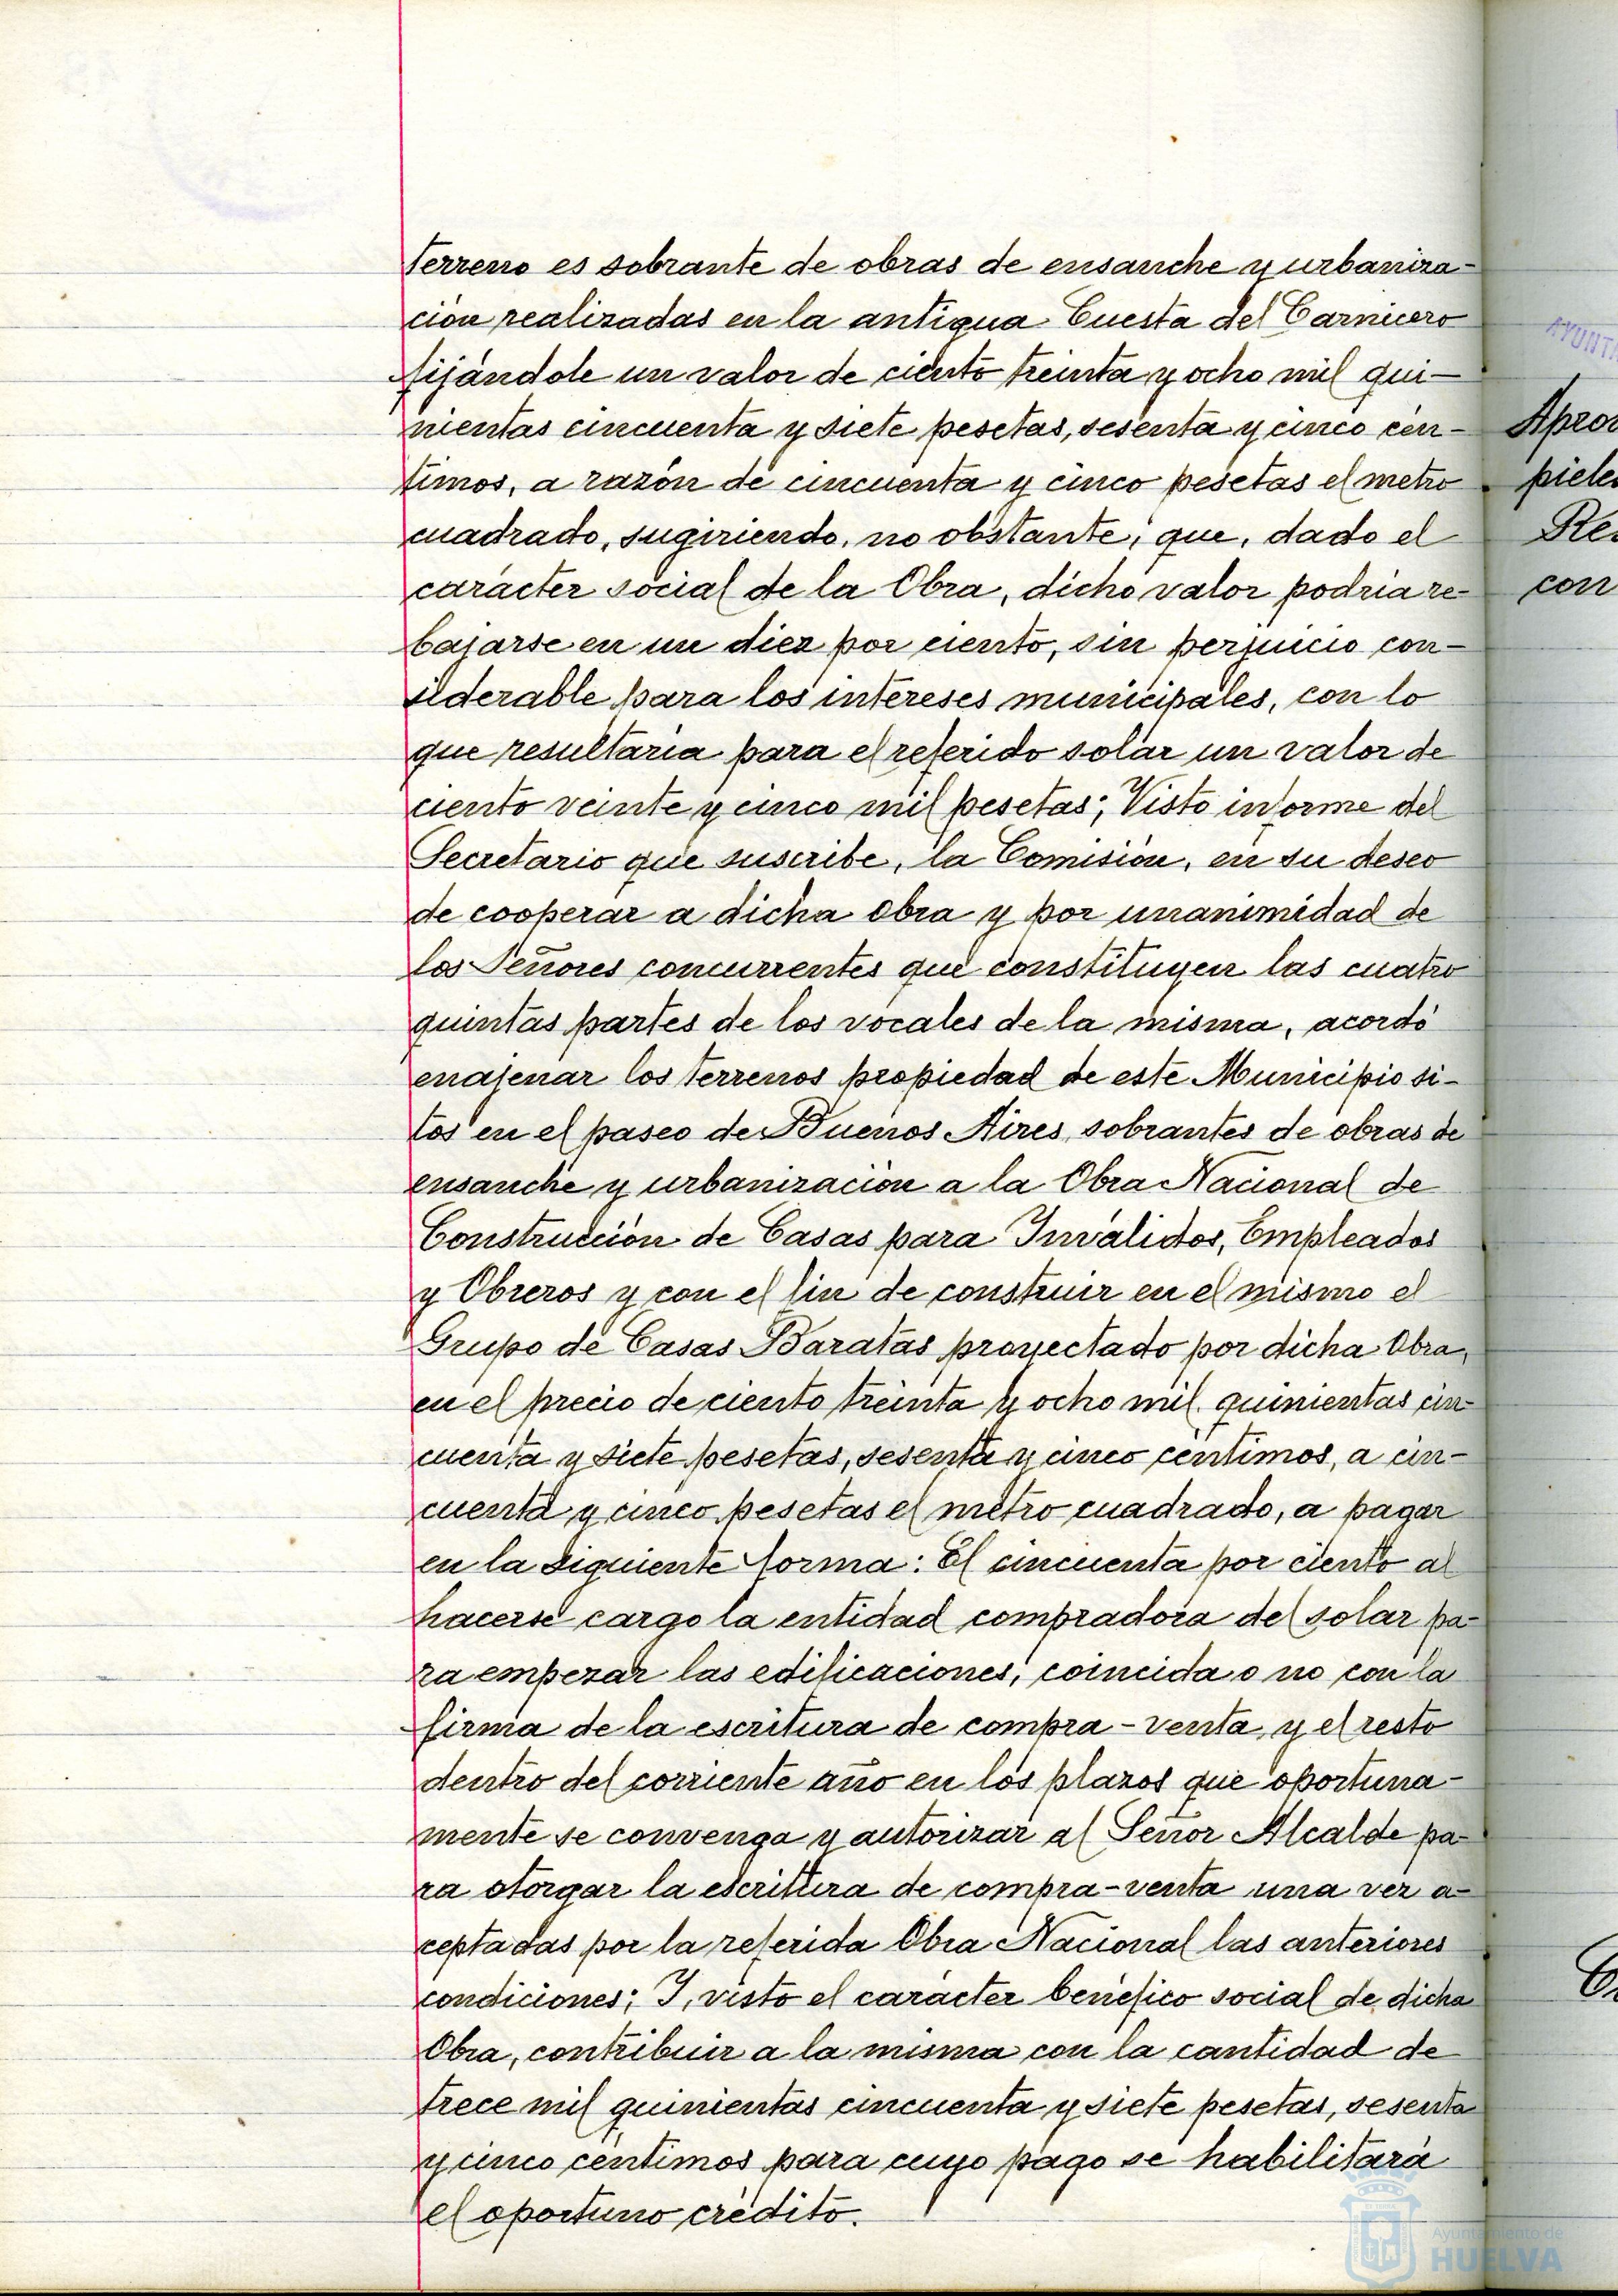 terreno es sobrante de obras de ensanche y urbaniza-
ción realizadas en la antigua Cuesta del Carnicero
fijándole un valor de ciento treinta y ocho mil qui-
nientas cincuenta y siete pesetas, sesenta y cinco cén-
timos, a razón de cincuenta y cinco pesetas el metro
cuadrado, sugiriendo, no obstante, que, dado el
carácter social de la Obra, dicho valor podría re-
bajarse en un diez por ciento, sin perjuicio con-
siderable para los intereses municipales, con lo
que resultaría para el referido solar un valor de
ciento veinte y cinco mil pesetas; Visto informe del
Secretario que suscribe, la Comisión, en su deseo
de cooperar a dicha obra y por unanimidad de
los Señores concurrentes que constituyen las cuatro
quintas partes de los vocales de la misma, acordó
enajenar los terrenos propiedad de este Municipio si-
tos en el paseo de Buenos Aires, sobrantes de obras de
ensanche y urbanización a la Obra Nacional de
Construcción de Casas para Inválidos, Empleados
y Obreros y con el fin de construir en el mismo el
Grupo de Casas Baratas proyectado por dicha Obra,
en el precio de ciento treinta y ocho mil quinientas cin-
cuenta y siete pesetas, sesenta y cinco centimos, a cin-
cuenta y cinco pesetas el metro cuadrado, a pagar
en la siguiente forma: El cincuenta por ciento al
hacerse cargo la entidad compradora del solar pa-
ra empezar las edificaciones, coincida o no con la
firma de la escritura de compra-venta y el resto
dentro del corriente año en los plazos que oportuna-
mente se convenga y autorizar al Señor Alcalde pa-
ra otorgar la escritura de compra-venta una vez a-
ceptadas por la referida Obra Nacional las anteriores
condiciones; Y, visto el carácter benéfico social de dicha
Obra, contribuir a la misma con la cantidad de
trece mil quinientas cincuenta y siete pesetas, sesenta
y cinco céntimos para cuyo pago se habilitará
el oportuno crédito.
AYUNT
Apro
piele
Re
con
Ayuntamiento de
HUELVA